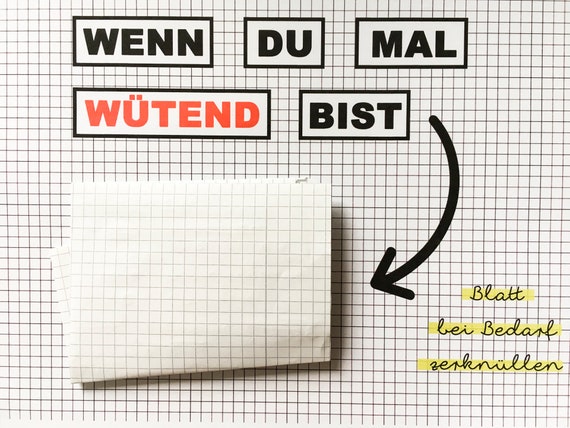 WENN DU MAL
WÜTEND BIST
Blatt
bei Bedarf
zerknüllen